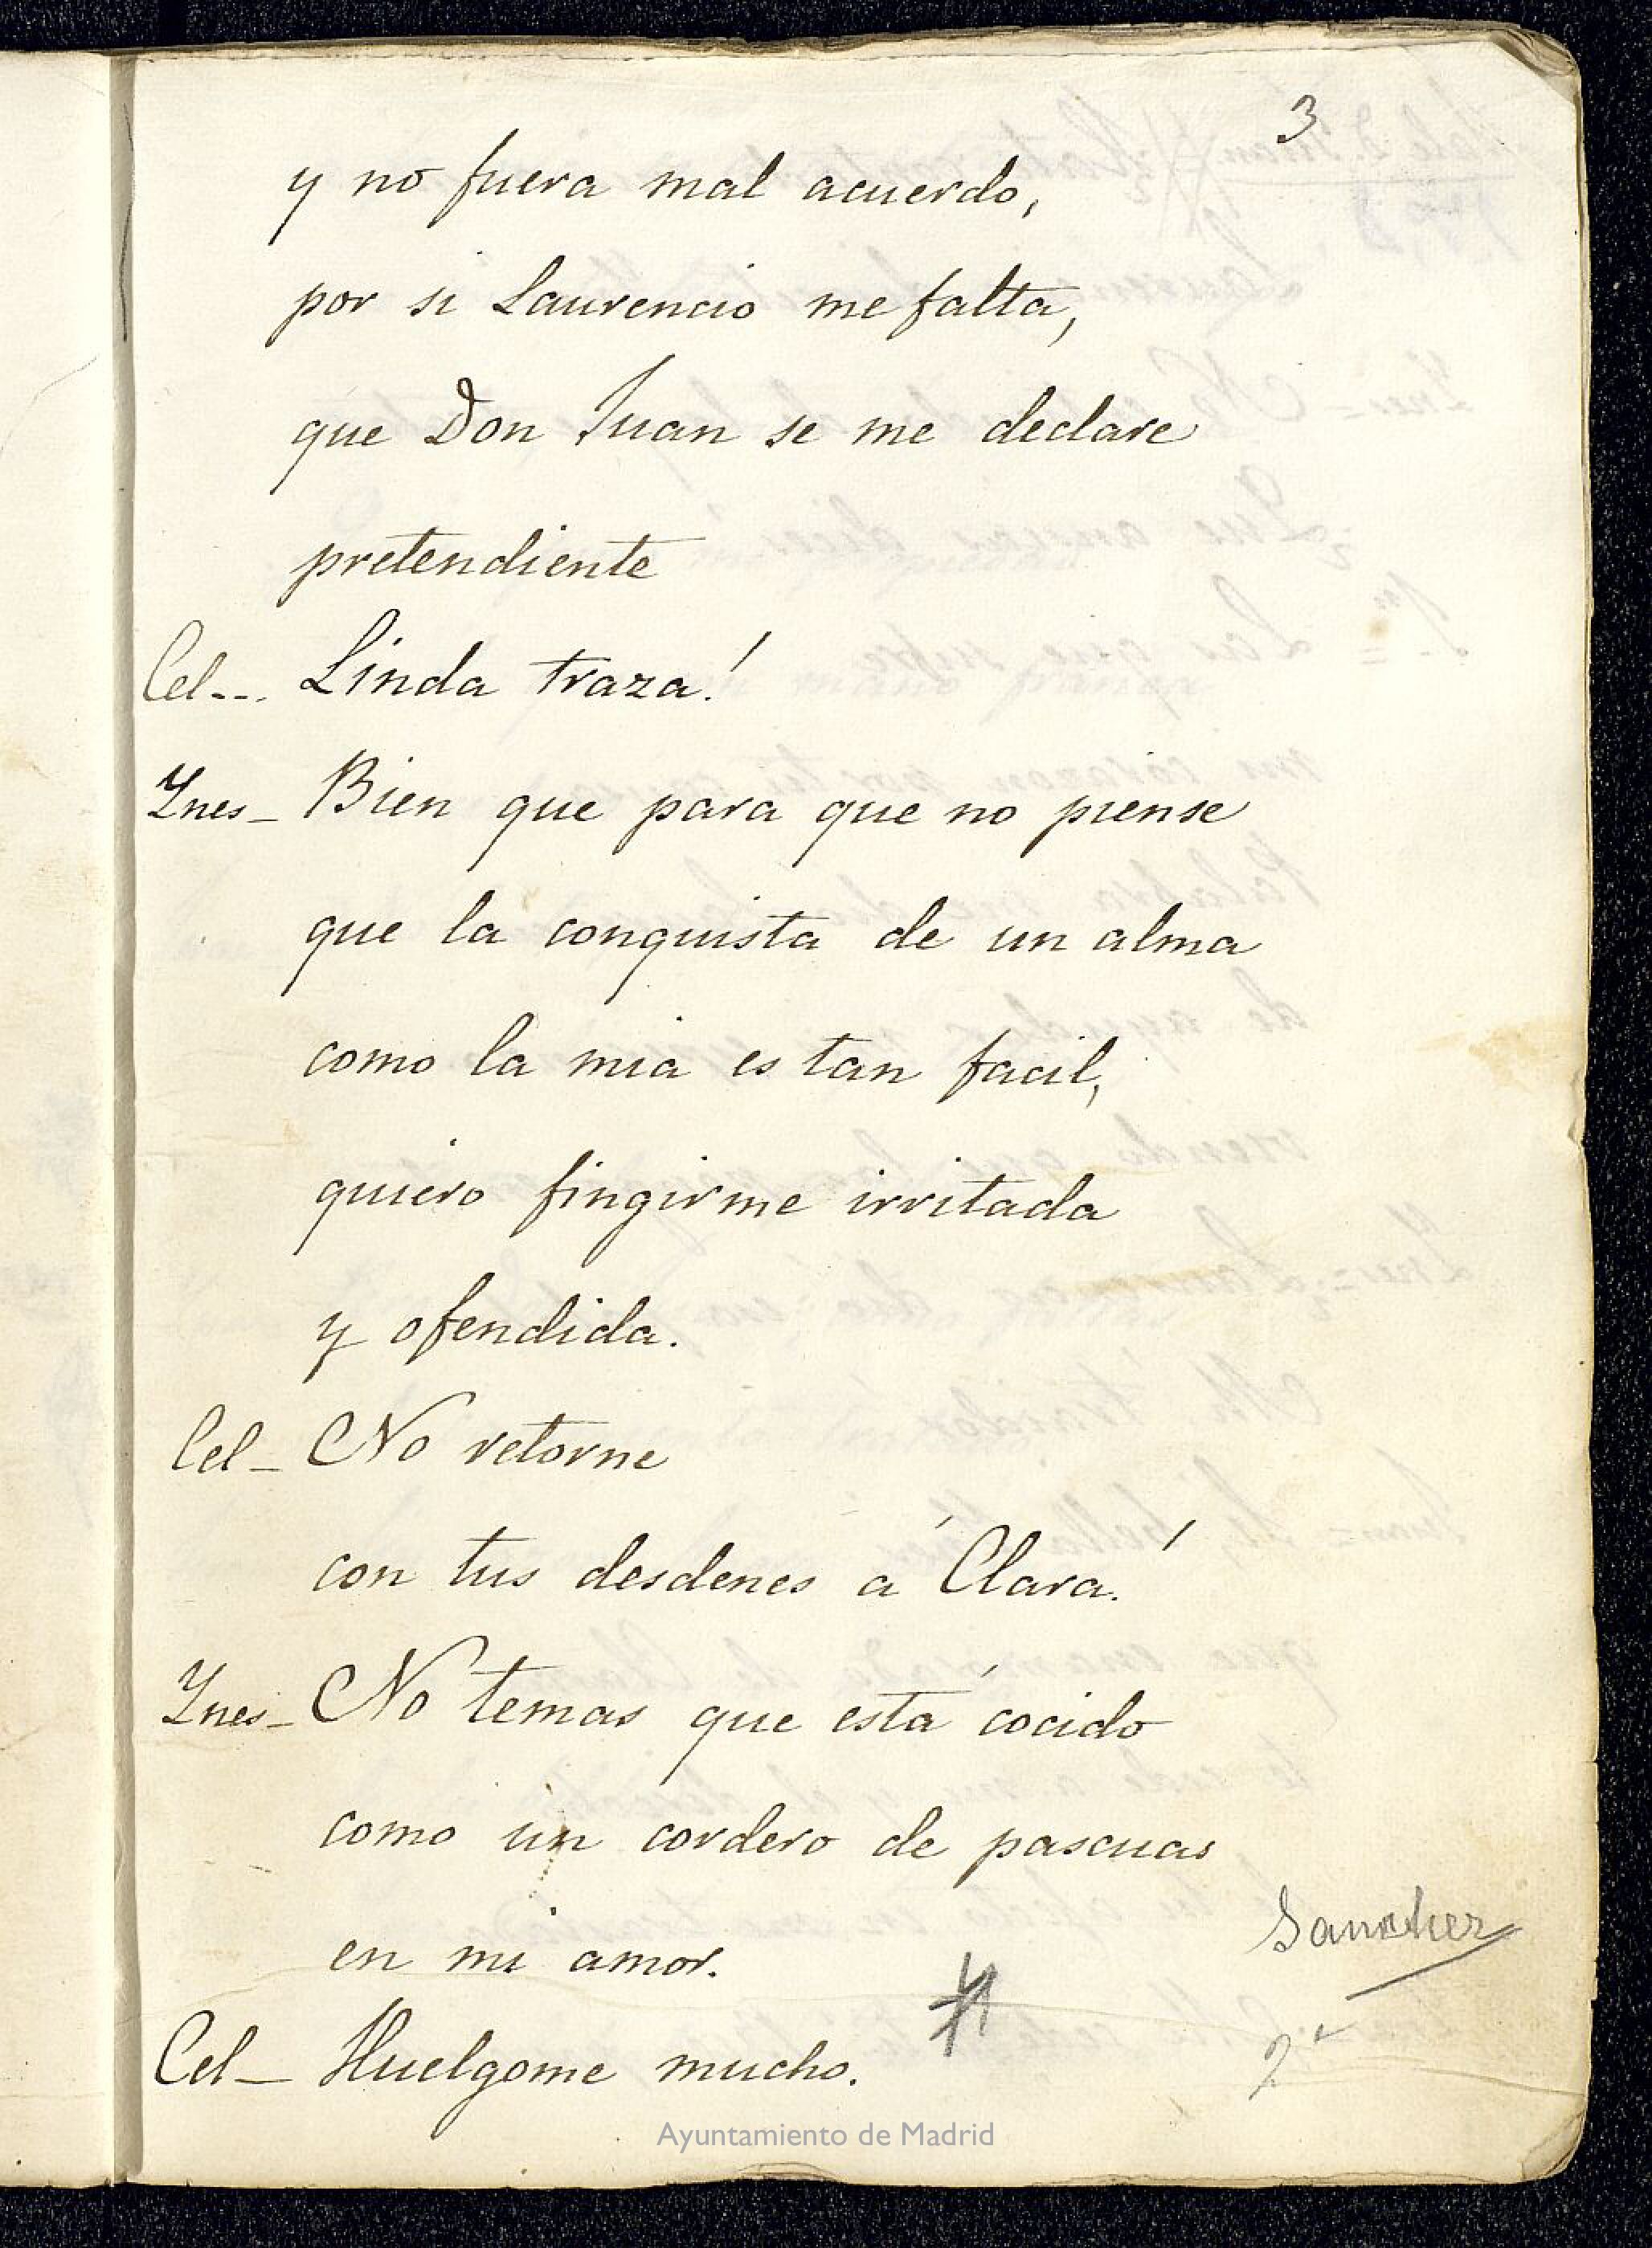 3
y no fuera mal acuerdo,
por si Laurencio me falta,
que Don Juan se me declare
pretendiente
Cel--- Linda traza!
Ynes- Bien que para que no piense
que la conquista de un alma
como la mia es tan facil,
quiero fingirme irritada
y ofendida.
Cel- No retorne
con tus desdenes á Clara!
Ynes- No temas que está cocido
como un cordero de pascuas
en mi amor.
Sanchez
Cel- Huelgome mucho.
2ª
Ayuntamiento de Madrid